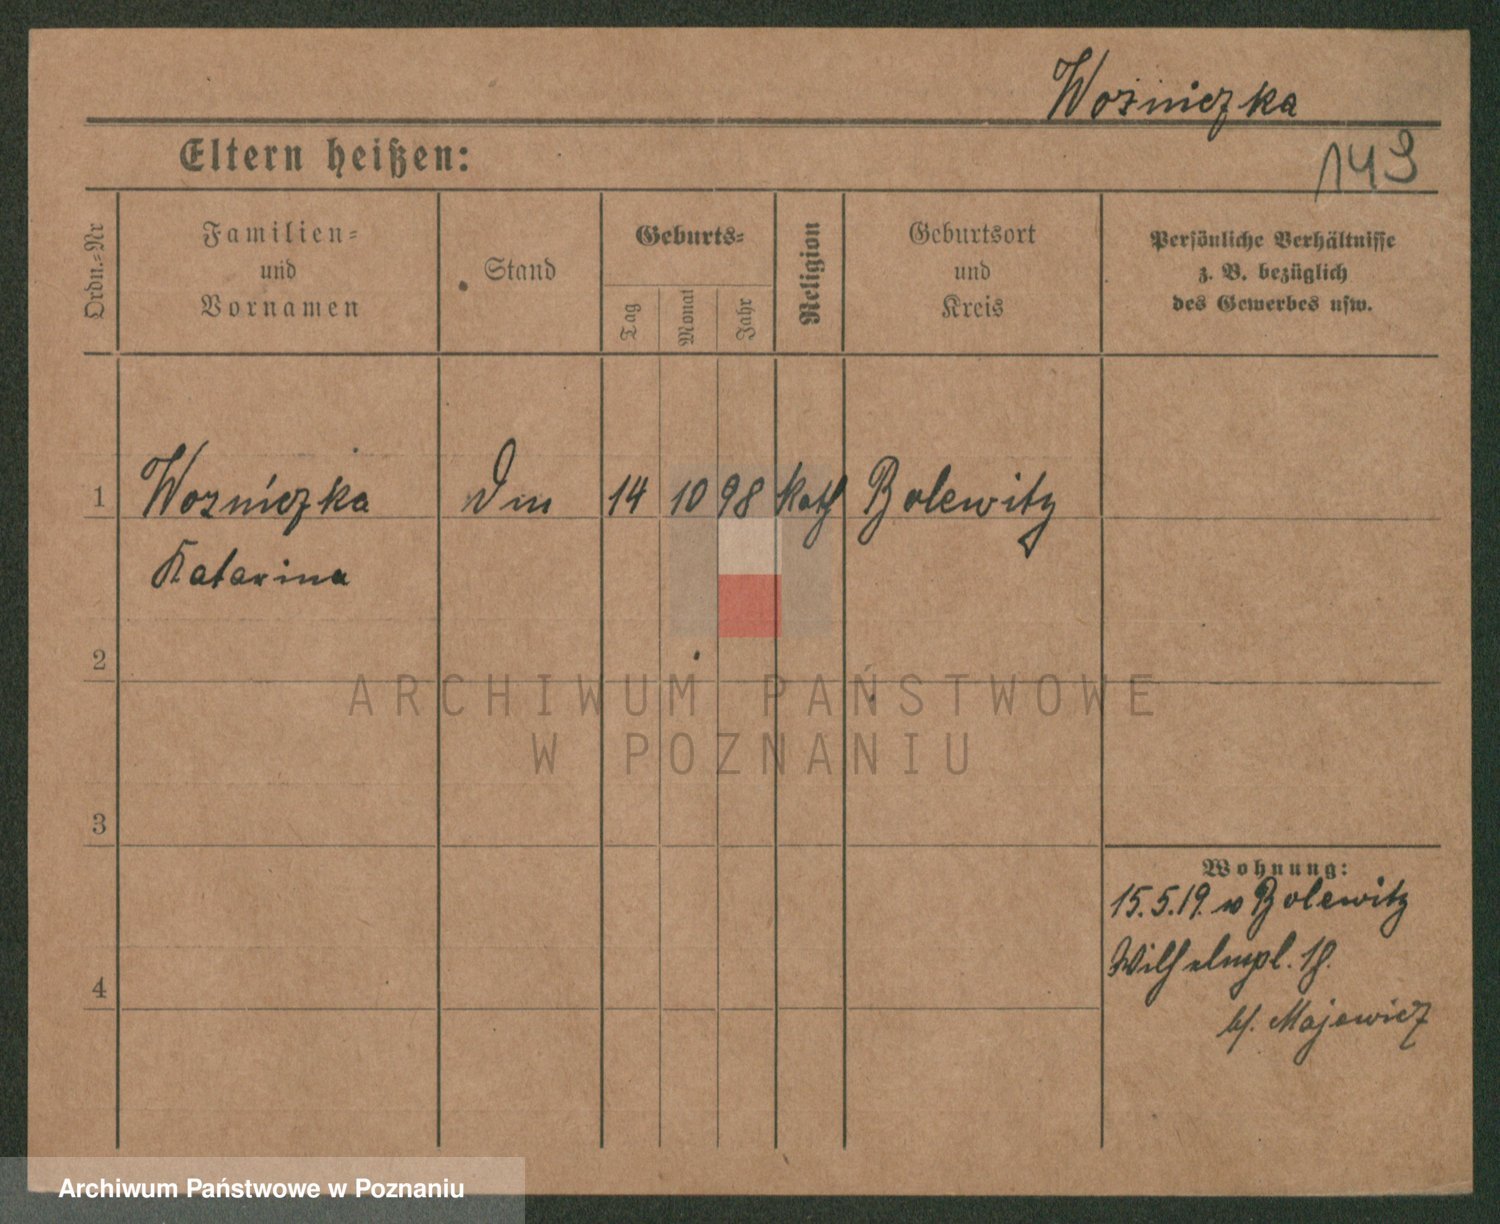 Woźniczka
149
Eltern heißen:
Ordn.-Nr
Familien-
und
Vornamen
Stand
Geburts-
Tag
Monat
Jahr
Religion
Geburtsort
und
Kreis
Persönliche Verhältnisse
z. B. bezüglich
des Gewerbes usw.
1 Wozniczka Dm 14 10 98 Kath Bolewitz
Katarina
2
ARCHIWUM PAŃSTWOWE
W POZNANIU
3
Wohnung:
15.5.19. v Bolewitz
4
Wilhelmpl. 18.
b/. Majewicz
Archiwum Państwowe w Poznaniu